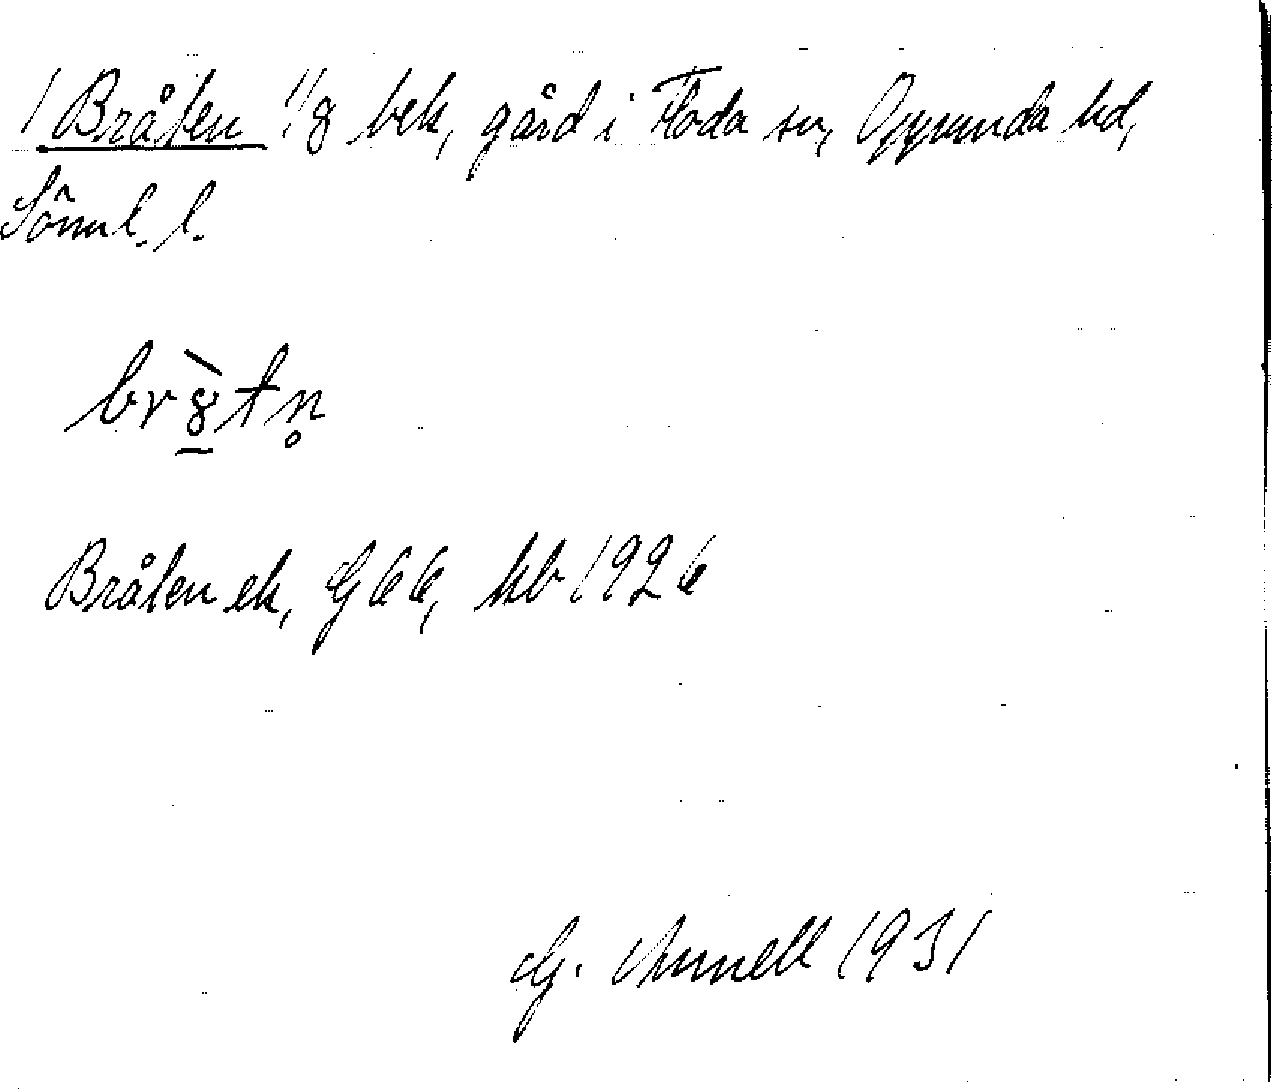 1 Bråten 1/8 bek, gård i Floda sn, Oppunda hd,
Söml. l.
br8̲̀tn̥
Bråten ek, G 66, kb 1926
G. Annell 1931